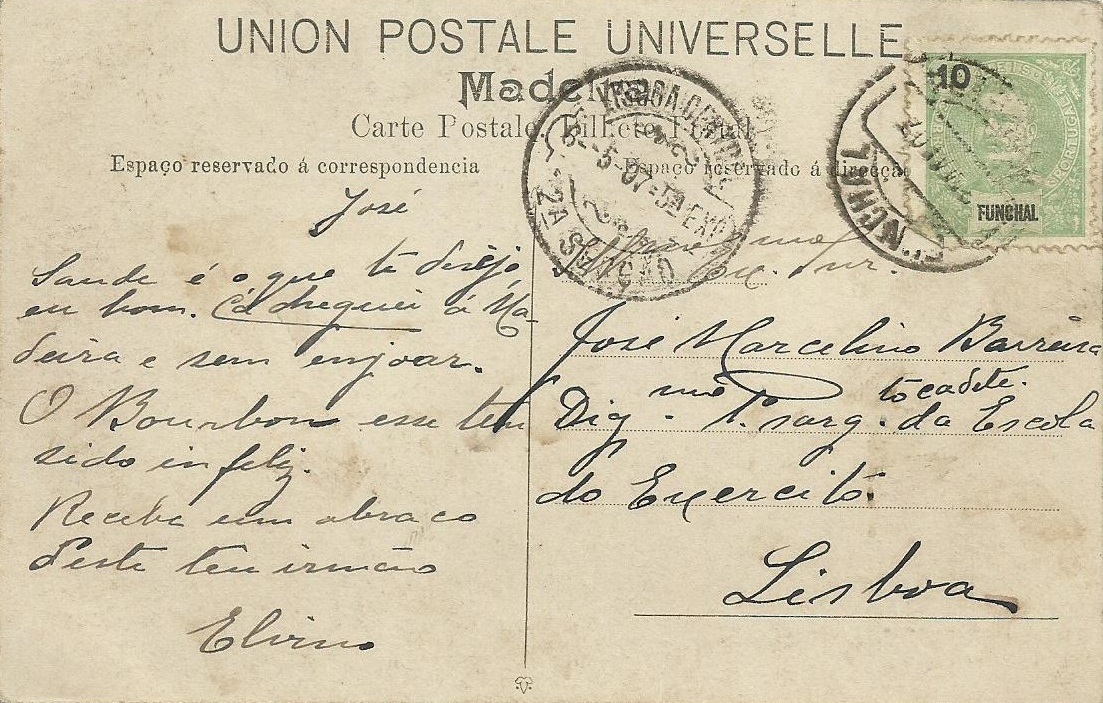 UNION POSTALE UNIVERSELLE
Madeira
Carte Postale. Bilhete Postal
Espaço reservado á correspondencia
Espaço reservado á direcção
10
FUNCHAL
FUNCHAL
LISBOA CENTRAL
5-07
2A SECÇÃO
José
Saude é o que te desejo
eu bom. Cá cheguei á Ma-
deira e sem enjoar.
O Bourbon esse tem
sido infeliz.
Receba um abraço
deste teu irmão
Elvino
Snr.
José Marcelino Barreira
Dig mo 1º sarg. to cadete. da Escola
do Exercito.
Lisboa